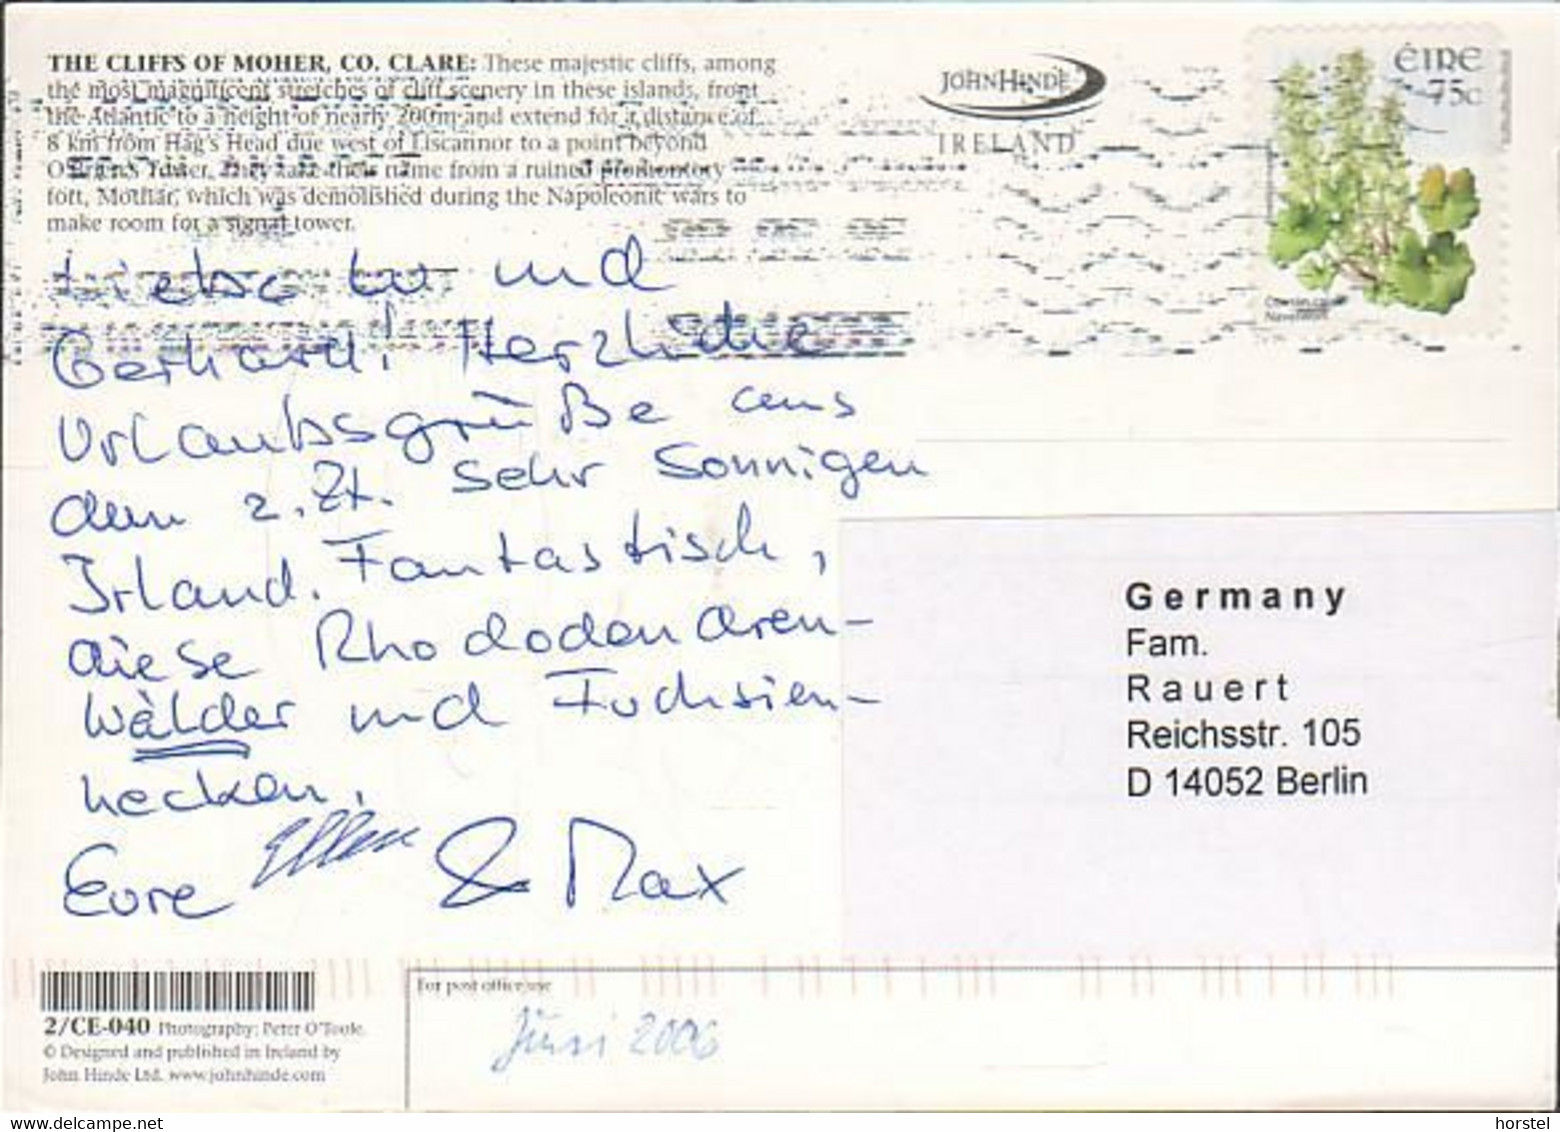 THE CLIFFS OF MOHER, CO. CLARE: These majestic cliffs, among
the most magnificent stretches of cliff scenery in these islands, front
the Atlantic to a height of nearly 200m and extend for a distance of
8 km from Hag's Head due west of Liscannor to a point beyond
O'Brien's Tower. They take their name from a ruined promontory
fort, Mothar, which was demolished during the Napoleonic wars to
make room for a signal tower.
JOHN HINDE
IRELAND
ÉIRE
75c
Liebe und
Gerhard! Herzliche
Urlaubsgrüße aus
dem z.Zt. sehr sonnigen
Irland. Fantastisch,
diese Rhododendren-
wälder und Fuchsien-
hecken.
Eure Ellen & Max
Germany
Fam.
Rauert
Reichsstr. 105
D 14052 Berlin
For post office use
Juni 2006
2/CE-040 Photography: Peter O'Toole.
© Designed and published in Ireland by
John Hinde Ltd. www.johnhinde.com
horstel